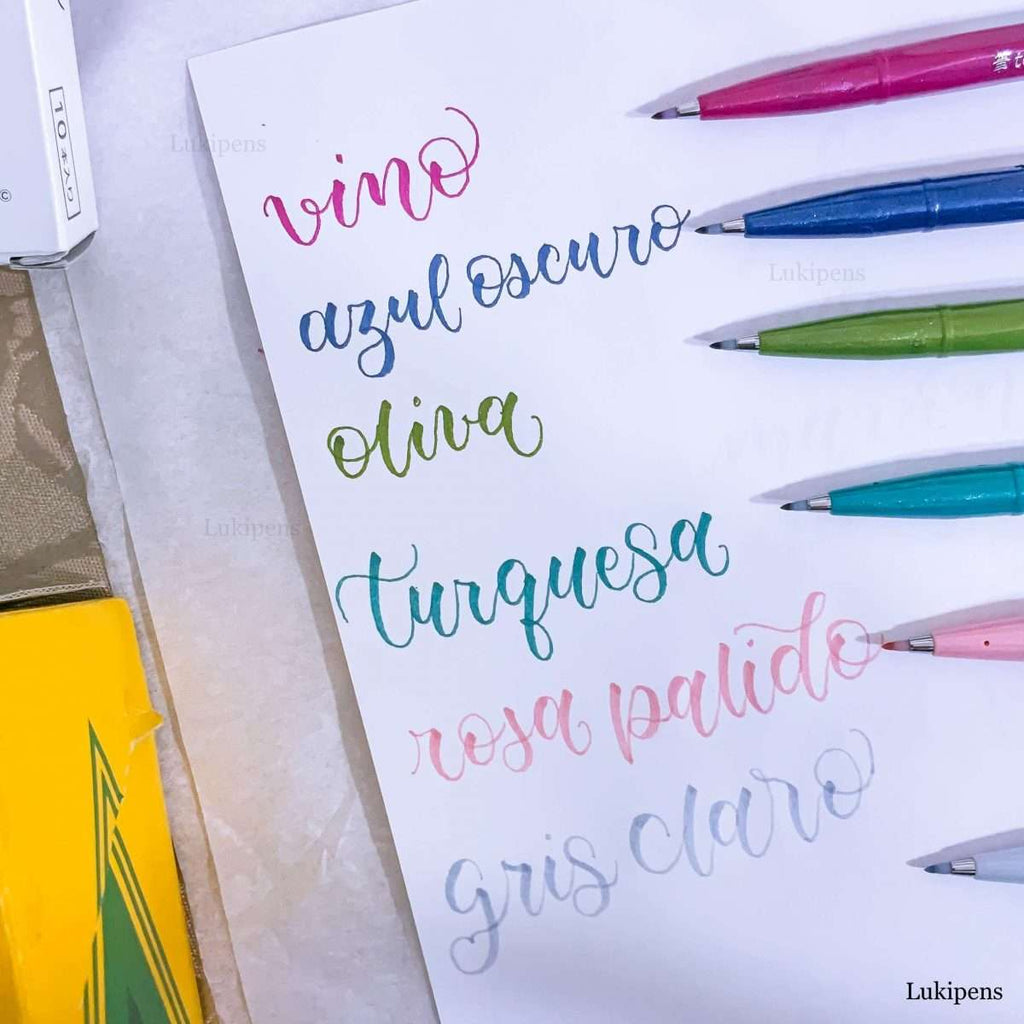 vino
azul oscuro
oliva
turquesa
rosa palido
gris claro
10本入り
©
Lukipens
Lukipens
Lukipens
Lukipens